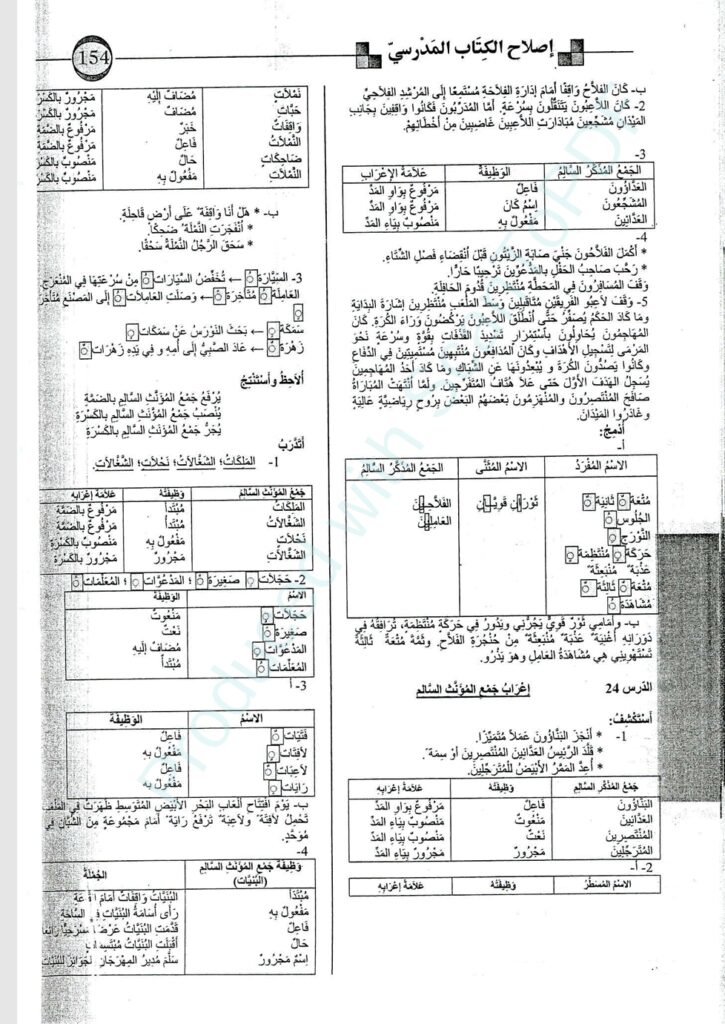 154
إصلاح الكِتَاب المَدْرسيّ
ب- كَانَ الفَلاَّحُ وَاقِفًا أَمَامَ إِدَارَةِ الفِلاَحَةِ مُسْتَمِعًا إِلَى المُرْشِدِ الفِلاَحِيِّ
2- كَانَ اللاَّعِبُونَ يَتَنَقَّلُونَ بِسُرْعَةٍ. أَمَّا المُدَرِّبُونَ فَكَانُوا وَاقِفِينَ بِجَانِبِ
المَيْدَانِ مُشَجِّعِينَ مُبَادَرَاتِ اللاَّعِبِينَ غَاضِبِينَ مِنْ أَخْطَائِهِمْ.
3-
الجَمْعُ المُذَكَّرُ السَّالِمُ | الوَظِيفَةُ | عَلاَمَةُ الإِعْرَابِ
العَدَّاؤُونَ | فَاعِلٌ | مَرْفُوعٌ بِوَاوِ المَدِّ
المُشَجِّعُونَ | اِسْمُ كَانَ | مَرْفُوعٌ بِوَاوِ المَدِّ
العَدَّائِينَ | مَفْعُولٌ بِهِ | مَنْصُوبٌ بِيَاءِ المَدِّ
4-
* أَكْمَلَ الفَلاَّحُونَ جَنْيَ صَابَةِ الزَّيْتُونِ قَبْلَ انْقِضَاءِ فَصْلِ الشِّتَاءِ.
* رَحَّبَ صَاحِبُ الحَفْلِ بِالمَدْعُوِّينَ تَرْحِيبًا حَارًّا.
وَقَفَ المُسَافِرُونَ فِي المَحَطَّةِ مُنْتَظِرِينَ قُدُومَ الحَافِلَةِ.
5- وَقَفَ لاَعِبُو الفَرِيقَيْنِ مُتَقَابِلِينَ وَسَطَ المَلْعَبِ مُنْتَظِرِينَ إِشَارَةَ البِدَايَةِ
وَمَا كَادَ الحَكَمُ يُصَفِّرُ حَتَّى انْطَلَقَ اللاَّعِبُونَ يَرْكُضُونَ وَرَاءَ الكُرَةِ. كَانَ
المُهَاجِمُونَ يُحَاوِلُونَ بِاسْتِمْرَارٍ تَسْدِيدَ القَذَفَاتِ بِقُوَّةٍ وَسُرْعَةٍ نَحْوَ
المَرْمَى لِتَسْجِيلِ الأَهْدَافِ وَكَانَ المُدَافِعُونَ مُنْتَبِهِينَ مُسْتَمِيتِينَ فِي الدِّفَاعِ
وَكَانُوا يَصُدُّونَ الكُرَةَ وَ يُبْعِدُونَهَا عَنِ الشِّبَاكِ وَمَا كَادَ أَحَدُ المُهَاجِمِينَ
يُسَجِّلُ الهَدَفَ الأَوَّلَ حَتَّى عَلاَ هُتَافُ المُتَفَرِّجِينَ. وَلَمَّا انْتَهَتِ المُبَارَاةُ
صَافَحَ المُنْتَصِرُونَ وَالمُنْهَزِمُونَ بَعْضُهُمُ البَعْضَ بِرُوحٍ رِيَاضِيَّةٍ عَالِيَةٍ
وَغَادَرُوا المَيْدَانَ.
أُدْمِجُ:
أ-
الاسْمُ المُفْرَدُ | الاسْمُ المُثَنَّى | الجَمْعُ المُذَكَّرُ السَّالِمُ
مُتْعَةٌ ثَانِيَةٌ | ثَوْرَانِ قَوِيَّيْنِ | الفَلاَّحِينَ
الجُلُوسُ | العَامِلِينَ
النَّوْرَجِ
حَرَكَةٍ مُنْتَظِمَةٍ
عَذْبَةً مُنْبَعِثَةً
مُتْعَةٌ ثَالِثَةٌ
مُشَاهَدَةُ
ب- وَأَمَامِي ثَوْرٌ قَوِيٌّ يَجُرُّنِي وَيَدُورُ فِي حَرَكَةٍ مُنْتَظِمَةٍ، تُرَافِقُهُ فِي
دَوَرَانِهِ أُغْنِيَةٌ عَذْبَةٌ مُنْبَعِثَةٌ مِنْ حَنْجَرَةِ الفَلاَّحِ. وَثَمَّةَ مُتْعَةٌ ثَالِثَةٌ
تَسْتَهْوِينِي هِيَ مُشَاهَدَةُ العَامِلِ وَهْوَ يَذْرُو.
الدّرس 24 إِعْرَابُ جَمْعِ المُؤَنَّثِ السَّالِمِ
أَسْتَكْشِفُ:
1- * أَنْجَزَ البَنَّاؤُونَ عَمَلاً مُتَمَيِّزًا.
* قَلَّدَ الرَّئِيسُ العَدَّائِينَ المُنْتَصِرِينَ أَوْسِمَةً.
* أُعِدَّ المَمَرُّ الأَبْيَضُ لِلْمُتَرَجِّلِينَ.
جَمْعُ المُذَكَّرِ السَّالِمِ | وَظِيفَتُهُ | عَلاَمَةُ إِعْرَابِهِ
البَنَّاؤُونَ | فَاعِلٌ | مَرْفُوعٌ بِوَاوِ المَدِّ
العَدَّائِينَ | مَنْعُوتٌ | مَنْصُوبٌ بِيَاءِ المَدِّ
المُنْتَصِرِينَ | نَعْتٌ | مَنْصُوبٌ بِيَاءِ المَدِّ
المُتَرَجِّلِينَ | مَجْرُورٌ | مَجْرُورٌ بِيَاءِ المَدِّ
2- أ-
الاسْمُ المُسَطَّرُ | وَظِيفَتُهُ | عَلاَمَةُ إِعْرَابِهِ
نَمْلاَتٍ | مُضَافٌ إِلَيْهِ | مَجْرُورٌ بِالكَسْرَةِ
حَبَّاتِ | مُضَافٌ | مَجْرُورٌ بِالكَسْرَةِ
وَاقِفَاتٌ | خَبَرٌ | مَرْفُوعٌ بِالضَّمَّةِ
النَّمْلاَتُ | فَاعِلٌ | مَرْفُوعٌ بِالضَّمَّةِ
ضَاحِكَاتٍ | حَالٌ | مَنْصُوبٌ بِالكَسْرَةِ
النَّمْلاَتِ | مَفْعُولٌ بِهِ | مَنْصُوبٌ بِالكَسْرَةِ
ب- * هَلْ أَنَا وَاقِفَةٌ عَلَى أَرْضٍ قَاحِلَةٍ.
* انْفَجَرَتِ النَّمْلَةُ ضَحِكًا.
* سَحَقَ الرَّجُلُ النَّمْلَةَ سَحْقًا.
3- السَّيَّارَةُ ← تُخَفِّضُ السَّيَّارَاتُ مِنْ سُرْعَتِهَا فِي المُنْعَرَجِ
العَامِلَةُ مُتَأَخِّرَةً ← وَصَلَتِ العَامِلاَتُ إِلَى المَصْنَعِ مُتَأَخِّرَ
سَمَكَةٍ ← بَحَثَ النَّوْرَسُ عَنْ سَمَكَاتٍ
زَهْرَةٌ ← عَادَ الصَّبِيُّ إِلَى أُمِّهِ وَ فِي يَدِهِ زَهَرَاتٌ
أُلاَحِظُ وأَسْتَنْتِجُ
يُرْفَعُ جَمْعُ المُؤَنَّثِ السَّالِمِ بِالضَّمَّةِ
يُنْصَبُ جَمْعُ المُؤَنَّثِ السَّالِمِ بِالكَسْرَةِ
يُجَرُّ جَمْعُ المُؤَنَّثِ السَّالِمِ بِالكَسْرَةِ
أَتَدَرَّبُ
1- المَلِكَاتُ؛ الشَّغَّالاَتُ؛ نَحْلاَتٍ؛ الشَّغَّالاَتِ.
جَمْعُ المُؤَنَّثِ السَّالِمِ | وَظِيفَتُهُ | عَلاَمَةُ إِعْرَابِهِ
المَلِكَاتُ | مُبْتَدَأٌ | مَرْفُوعٌ بِالضَّمَّةِ
الشَّغَّالاَتُ | مُبْتَدَأٌ | مَرْفُوعٌ بِالضَّمَّةِ
نَحْلاَتٍ | مَفْعُولٌ بِهِ | مَنْصُوبٌ بِالكَسْرَةِ
الشَّغَّالاَتِ | مَجْرُورٌ | مَجْرُورٌ بِالكَسْرَةِ
2- حَجَلاَتٍ صَغِيرَةً ؛ المَدْعُوَّاتِ ؛ المُعَلِّمَاتُ
الاسْمُ | الوَظِيفَةُ
حَجَلاَتٍ | مَنْعُوتٌ
صَغِيرَةً | نَعْتٌ
المَدْعُوَّاتِ | مُضَافٌ إِلَيْهِ
المُعَلِّمَاتُ | مُبْتَدَأٌ
3- أ
الاسْمُ | الوَظِيفَةُ
فَتَيَاتٌ | فَاعِلٌ
لاَفِتَاتٍ | مَفْعُولٌ بِهِ
لاَعِبَاتٌ | فَاعِلٌ
رَايَاتٍ | مَفْعُولٌ بِهِ
ب- يَوْمَ افْتِتَاحِ أَلْعَابِ البَحْرِ الأَبْيَضِ المُتَوَسِّطِ ظَهَرَتْ فِي المَلْعَبِ
تَحْمِلُ لاَفِتَةً وَلاَعِبَةٌ تَرْفَعُ رَايَةً أَمَامَ مَجْمُوعَةٍ مِنَ الشُّبَّانِ فِي
مُوَحَّدٍ.
4-
وَظِيفَةُ جَمْعِ المُؤَنَّثِ السَّالِمِ (البُنَيَّات) | الجُمْلَةُ
مُبْتَدَأٌ | البُنَيَّاتُ وَاقِفَاتٌ أَمَامَ
مَفْعُولٌ بِهِ | رَأَى أُسَامَةُ البُنَيَّاتِ فِي السَّاحَةِ
فَاعِلٌ | قَدَّمَتِ البُنَيَّاتُ عَرْضًا مَسْرَحِيًّا رَائِعًا
حَالٌ | أَقْبَلَتِ البُنَيَّاتُ مُبْتَسِمَاتٍ
اِسْمٌ مَجْرُورٌ | سَلَّمَ مُدِيرُ المِهْرَجَانِ جَوَائِزَ لِلْبُنَيَّاتِ